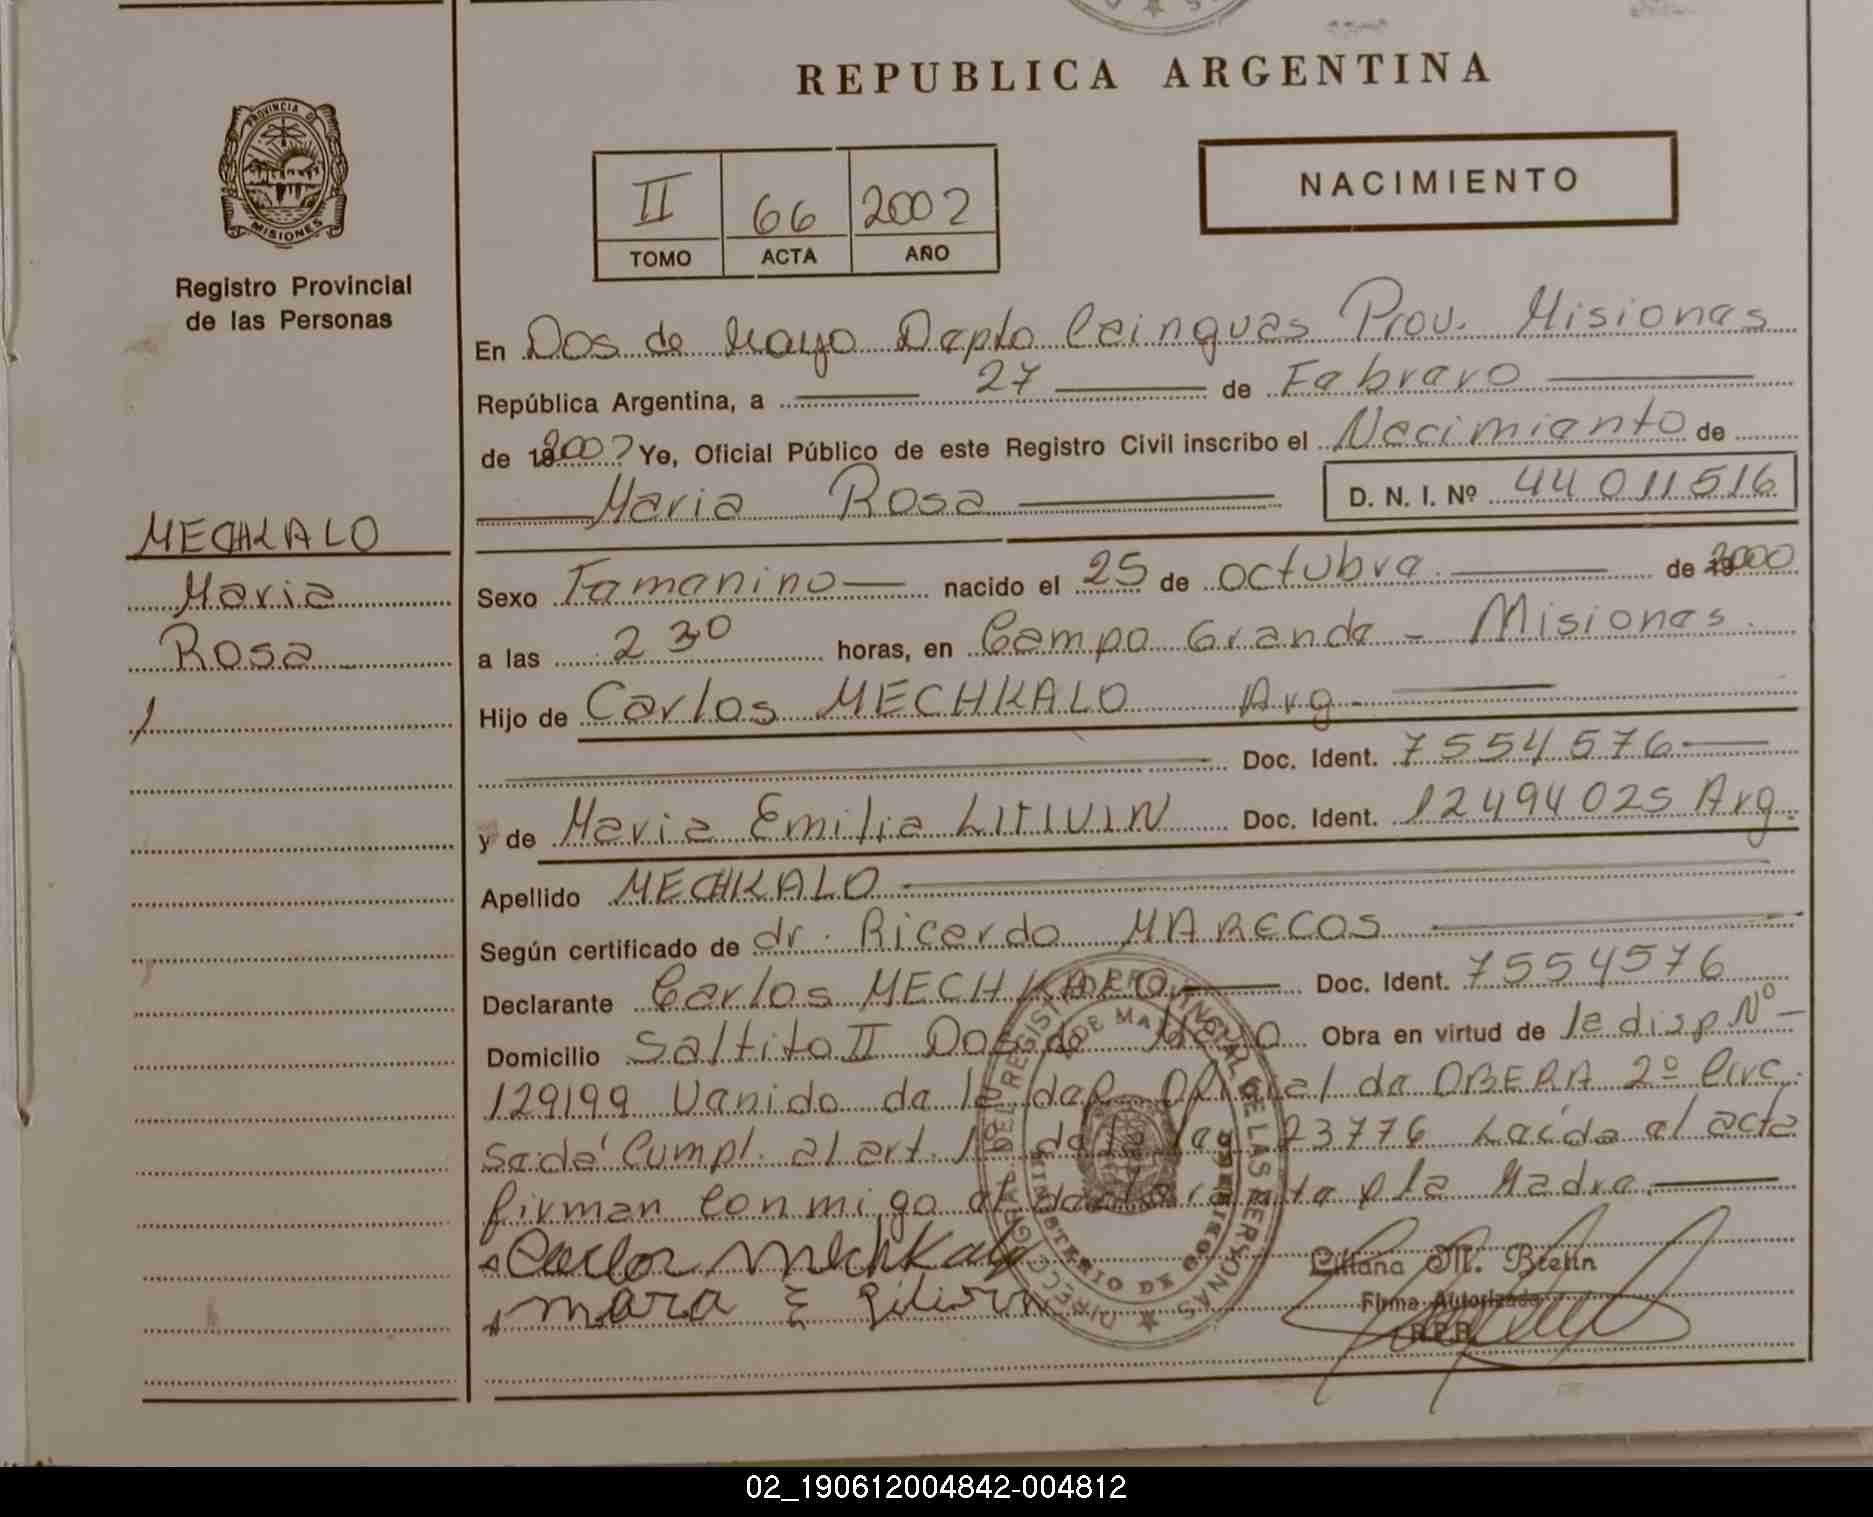 REPUBLICA ARGENTINA
PROVINCIA DE MISIONES
Registro Provincial
de las Personas
II 66 2002
TOMO ACTA AÑO
NACIMIENTO
En Dos de Mayo Depto Cainguas Prov. Misiones
República Argentina, a 27 de Febrero
de 2002 Yo, Oficial Público de este Registro Civil inscribo el Nacimiento de
Maria Rosa D. N. I. Nº 44 011516
MECHKALO
Maria
Rosa
Sexo Femenino nacido el 25 de octubre de 2000
a las 2 30 horas, en Campo Grande - Misiones.
Hijo de Carlos MECHKALO Arg.
Doc. Ident. 7554576
y de Maria Emilia LITIVIN Doc. Ident. 12494025 Arg.
Apellido MECHKALO
Según certificado de dr. Ricardo MARECOS
Declarante Carlos MECHKALO Doc. Ident. 7554576
Domicilio Saltito II Dos de Mayo Obra en virtud de la disp Nº
129/99 Venido de la del. de OBERA 2º Circ.
Se dé Cumpl. al art. de la ley 23776 Leída el acta
firman conmigo el declarante p la Madre.
Carlos Mechkalo
Liliana M. Brehn
Firma Autorizada
R.P.P.
DIRECC. GRAL. DEL REGISTRO PROVINCIAL DE LAS PERSONAS
MINISTERIO DE GOBIERNO
DOS DE MAYO
02_190612004842-004812